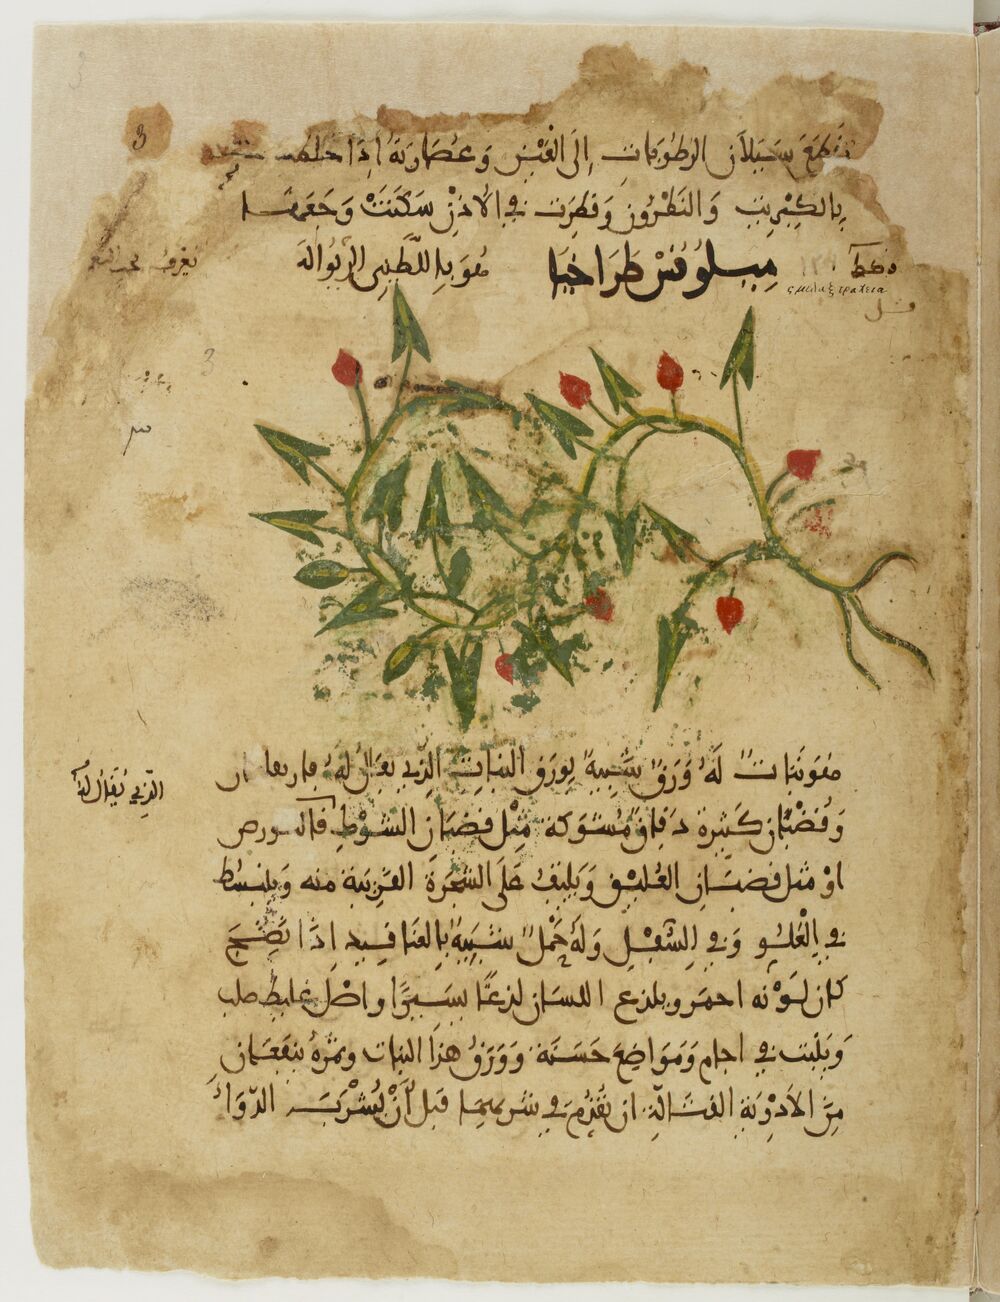 3
تقطع سيلان الرطوبات إلى العين وعصارته إذا خلطت
بالكبريت والنطرون وقطرت في الأذن سكنت وجعها
ميلوقس طراخيا هو باللطيني الربواله
ςμιλαξ τραχεια
3
هو نبات له ورق شبيه بورق النبات الذي يقال له
الذي يقال له
وقضبان كثيرة دقاق مشوكة مثل قضبان الشوط
او مثل قضبان العليق ويلتف على الشجرة القريبة منه وينبسط
في العلو وفي السفل وله حمل شبيه بالعناقيد اذا نضج
كان لونه احمر ويلذع اللسان لذعا يسيرا واصل غليظ صلب
وينبت في اجام ومواضع خشنة وورق هذا النبات وثمره ينفعان
من الادوية القتالة ان تقدم في شربهما قبل أن يشرب الدواء